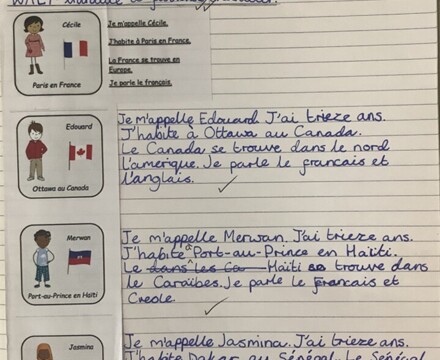 WALT
Cécile
Paris en France
Je m'appelle Cécile.
J'habite à Paris en France.
La France se trouve en
Europe.
Je parle le français.
Edouard
Ottawa au Canada
Je m'appelle Edouard. J'ai trieze ans.
J'habite à Ottawa au Canada.
Le Canada se trouve dans le nord
l'amerique. Je parle le francais et
l'anglais.
Merwan
Port-au-Prince en Haïti
Je m'appelle Merwan. J'ai trieze ans.
J'habite à Port-au-Prince en Haïti.
Le dans les Ca Haïti se trouve dans
le Caraïbes. Je parle le francais et
Creole.
Jasmina
Je m'appelle Jasmina. J'ai trieze ans.
J'habite Dakar au Sénégal. Le Sénégal